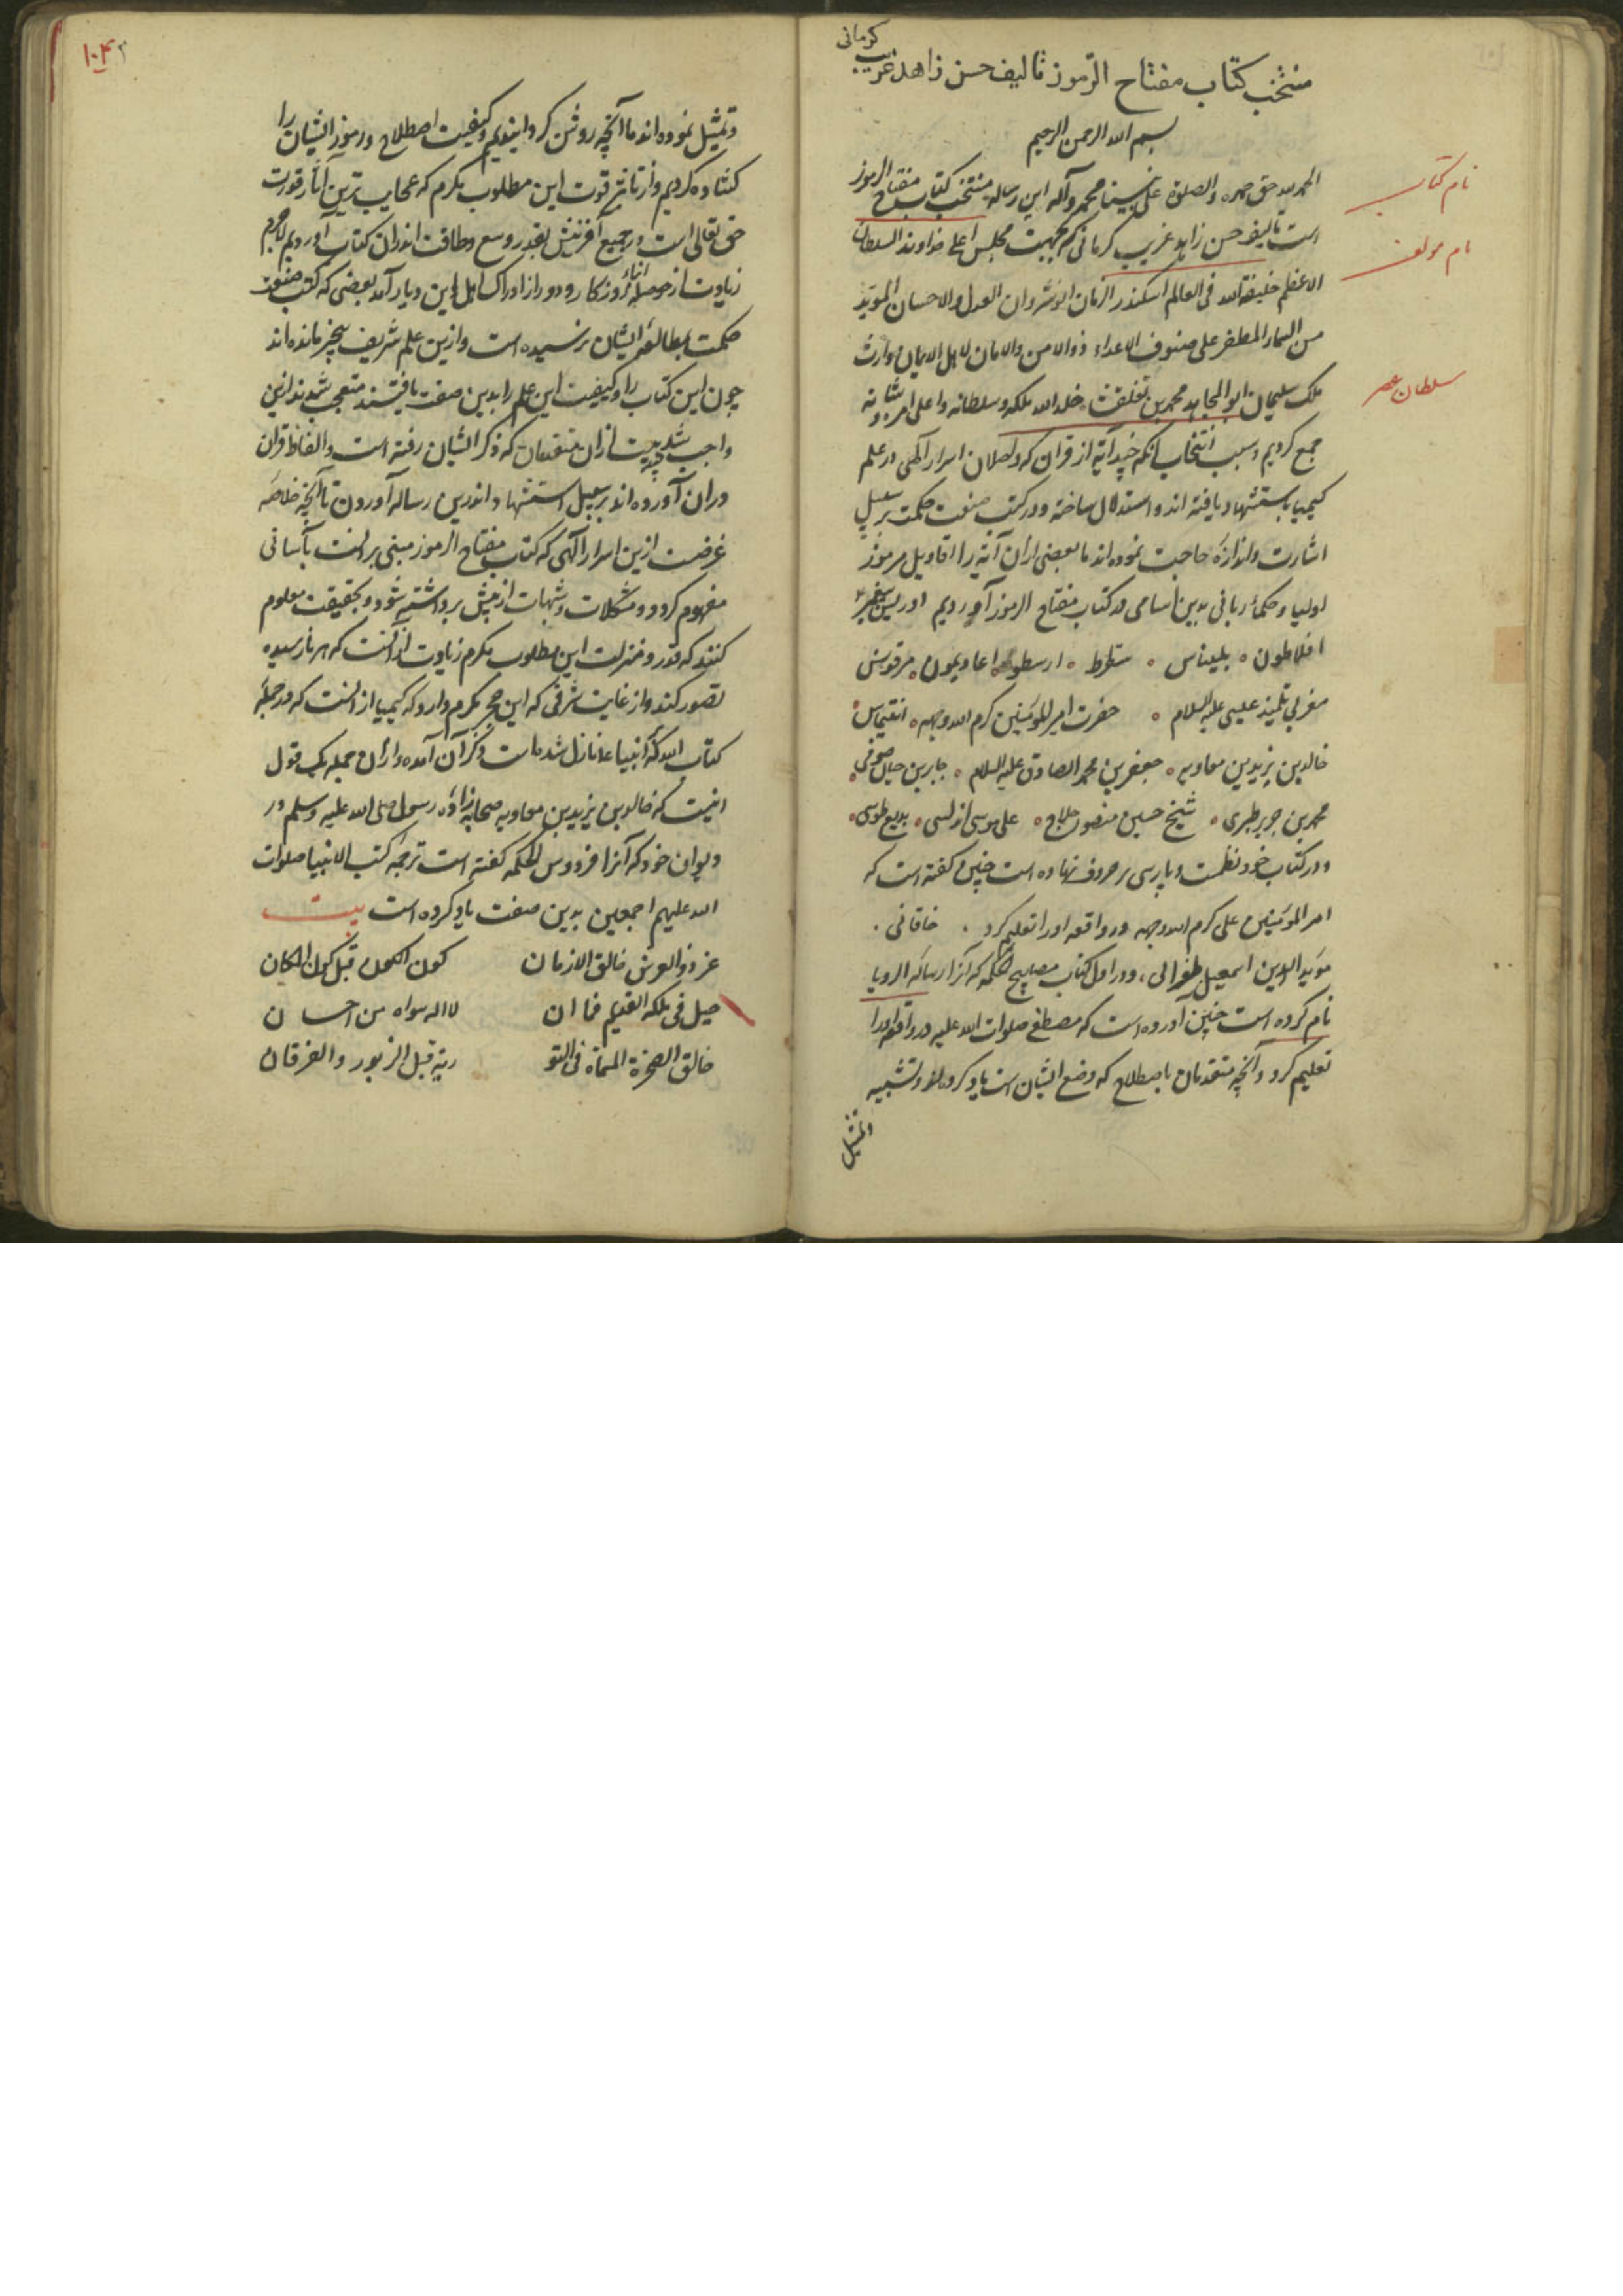 کرمانی
منتخب کتاب مفتاح الرموز تالیف حسن زاهد غریب
بسم الله الرحمن الرحیم
الحمد لله حق حمده والصلوة علی نبینا محمد وآله این رساله منتخب کتاب مفتاح الرموز
نام کتاب
است تالیف حسن زاهد غریب کرمانی که بجهت مجلس اعلی خداوند السلطان
نام مولف
الاعظم خلیفة الله فی العالم اسکندر الزمان انوشروان العدل والاحسان الموید
من السماء المظفر علی صنوف الاعداء ذوالامن والامان لاهل الایمان وارث
ملک سلیمان ابوالمجاهد محمد بن تغلقشاه خلد الله ملکه وسلطانه واعلی امره وشانه
سلطان عصر
جمع کردیم وسبب انتخاب آنکه چند آیة از قران که واصلان اسرار الهی در علم
کیمیا باستشهاد یافته اند و استدلال ساخته ودر کتب صنعت حکمت بر سبیل
اشارت واندازه حاجت نموده اند ما بعضی ازان آیه را اقاویل مرموز
اولیا وحکماء ربانی بدین اسامی در کتاب مفتاح الرموز آوردیم ادریس پیغمبر
افلاطون بلیناس سقراط ارسطو اغاذیمون مرقونس
مغربی تلمیذ عیسی علیه السلام حضرت امیر المومنین کرم الله وجهه
خالد بن یزید بن معاویه جعفر بن محمد الصادق علیه السلام جابر بن حیان صوفی
محمد بن جریر طبری شیخ حسین منصور حلاج علی موسی اندلسی بدیع طوسی
ودر کتاب خود نظمست وپارسی بر حروف نهاده است چنین گفته است که
امیر المومنین علی کرم الله وجهه در واقعه اورا تعلیم کرد خاقانی
موید الدین اسمعیل طغرائی ودر اول کتاب مصابیح الحکمه که آنرا رساله الرویا
نام کرده است چنین آورده است که مصطفی صلوات الله علیه در واقعه اورا
تعلیم کرد وآنچه متقدمان باصطلاح که وضع ایشان است یاد کرده اند وتشبیه
وتمثیل
۱۰۴
وتمثیل نموده اند ما آنچه روشن گردانیدیم وکیفیت اصطلاح ورموز ایشان را
کشاده کردیم واز نتائج قوت این مطلوب مکرم که عجایب ترین آثار قدرت
حق تعالی است در جمیع آفرینش بقدر وسع وطاقت اندران کتاب آوردیم لاجرم
زیادت از حوصله ابناء روزگار ودور از ادراک اهل این دیار آمد بعضی که کتب صنعت
حکمت بمطالعه ایشان نرسیده است وازین علم شریف بیخبر مانده اند
چون این کتاب را وکیفیت این علم را بدین صفت یافتند متعجب شدند ازین
واجب شد ازان متقدمان که ذکر ایشان رفته است والفاظ قران
دران آورده اند بر سبیل استشهاد اندرین رساله آوردن تا آنچه خلاصه
غرضست ازین اسرار الهی که کتاب مفتاح الرموز مبنی بر انست بآسانی
مفهوم گردد ومشکلات وشبهات از پیش برداشته شود وبحقیقت معلوم
کنند که قدر ومنزلت این مطلوب مکرم زیادت ازانست که هر نارسیده
تصور کند واز غایت شرفی که این حجر مکرم دارد که کیمیا ازانست که در جمله
کتاب الله که بر انبیا نازل شده است ذکر آن آمده وازان جمله یک قول
اینست که خالد بن یزید بن معاویه صحابه زاده رسول صلی الله علیه وسلم در
دیوان خود که آنرا فردوس الحکمه گفته است ترجمه کتب الانبیا صلوات
الله علیهم اجمعین بدین صفت یاد کرده است بیت
عز ذو العرش خالق الازمان کون الکون قبل کون المکان
جل فی ملکه القدیم فما ان لا اله سواه من احسان
خالق الصخرة المسماة فی التو ریة قبل الزبور والفرقان